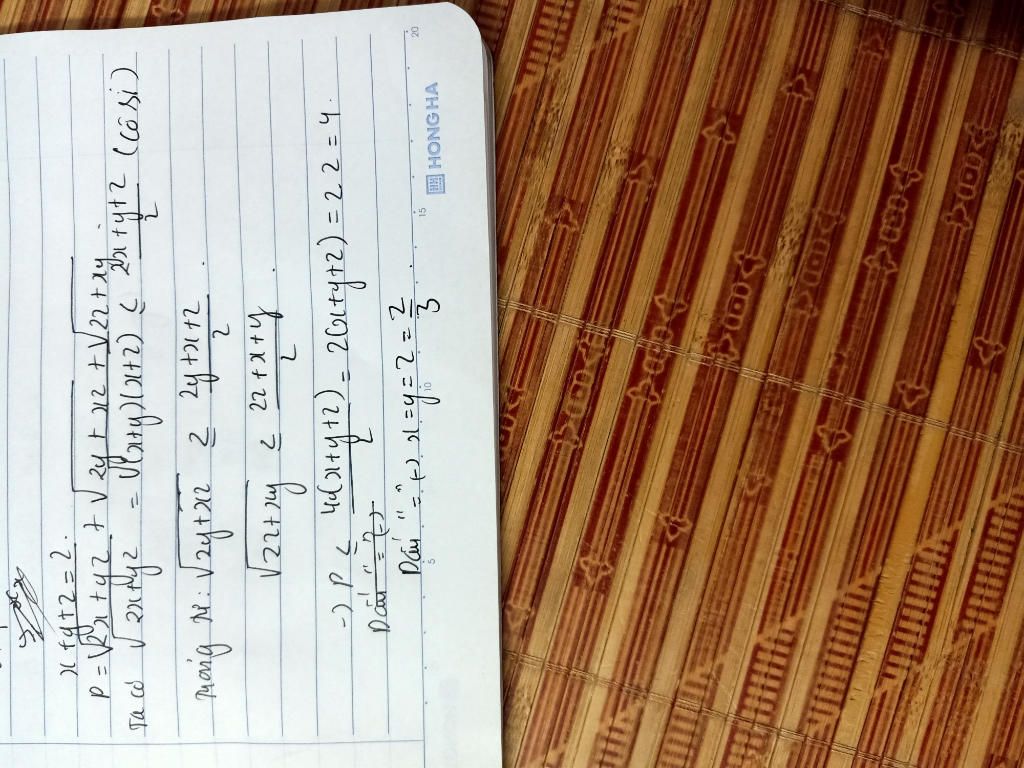 x + y + z = 2.
P = √2x + yz + √2y + xz + √2z + xy.
Ta có √2x + yz = √(x+y)(x+z) ≤ 2x + y + z / 2 (Cô si)
Tương tự: √2y + xz ≤ 2y + x + z / 2 .
√2z + xy ≤ 2z + x + y / 2 .
→ P ≤ 4(x+y+z) / 2 = 2(x+y+z) = 2.2 = 4.
Dấu "=" (-)
Dấu "=" (-) x = y = z = 2 / 3 .
HONG HA
5 10 15 20